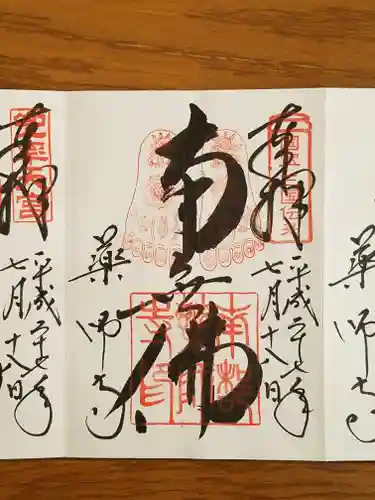 奉拝
平成二十七年
七月十八日
南無佛
薬師寺
奉拝
平成二十七年
七月十八日
薬師寺